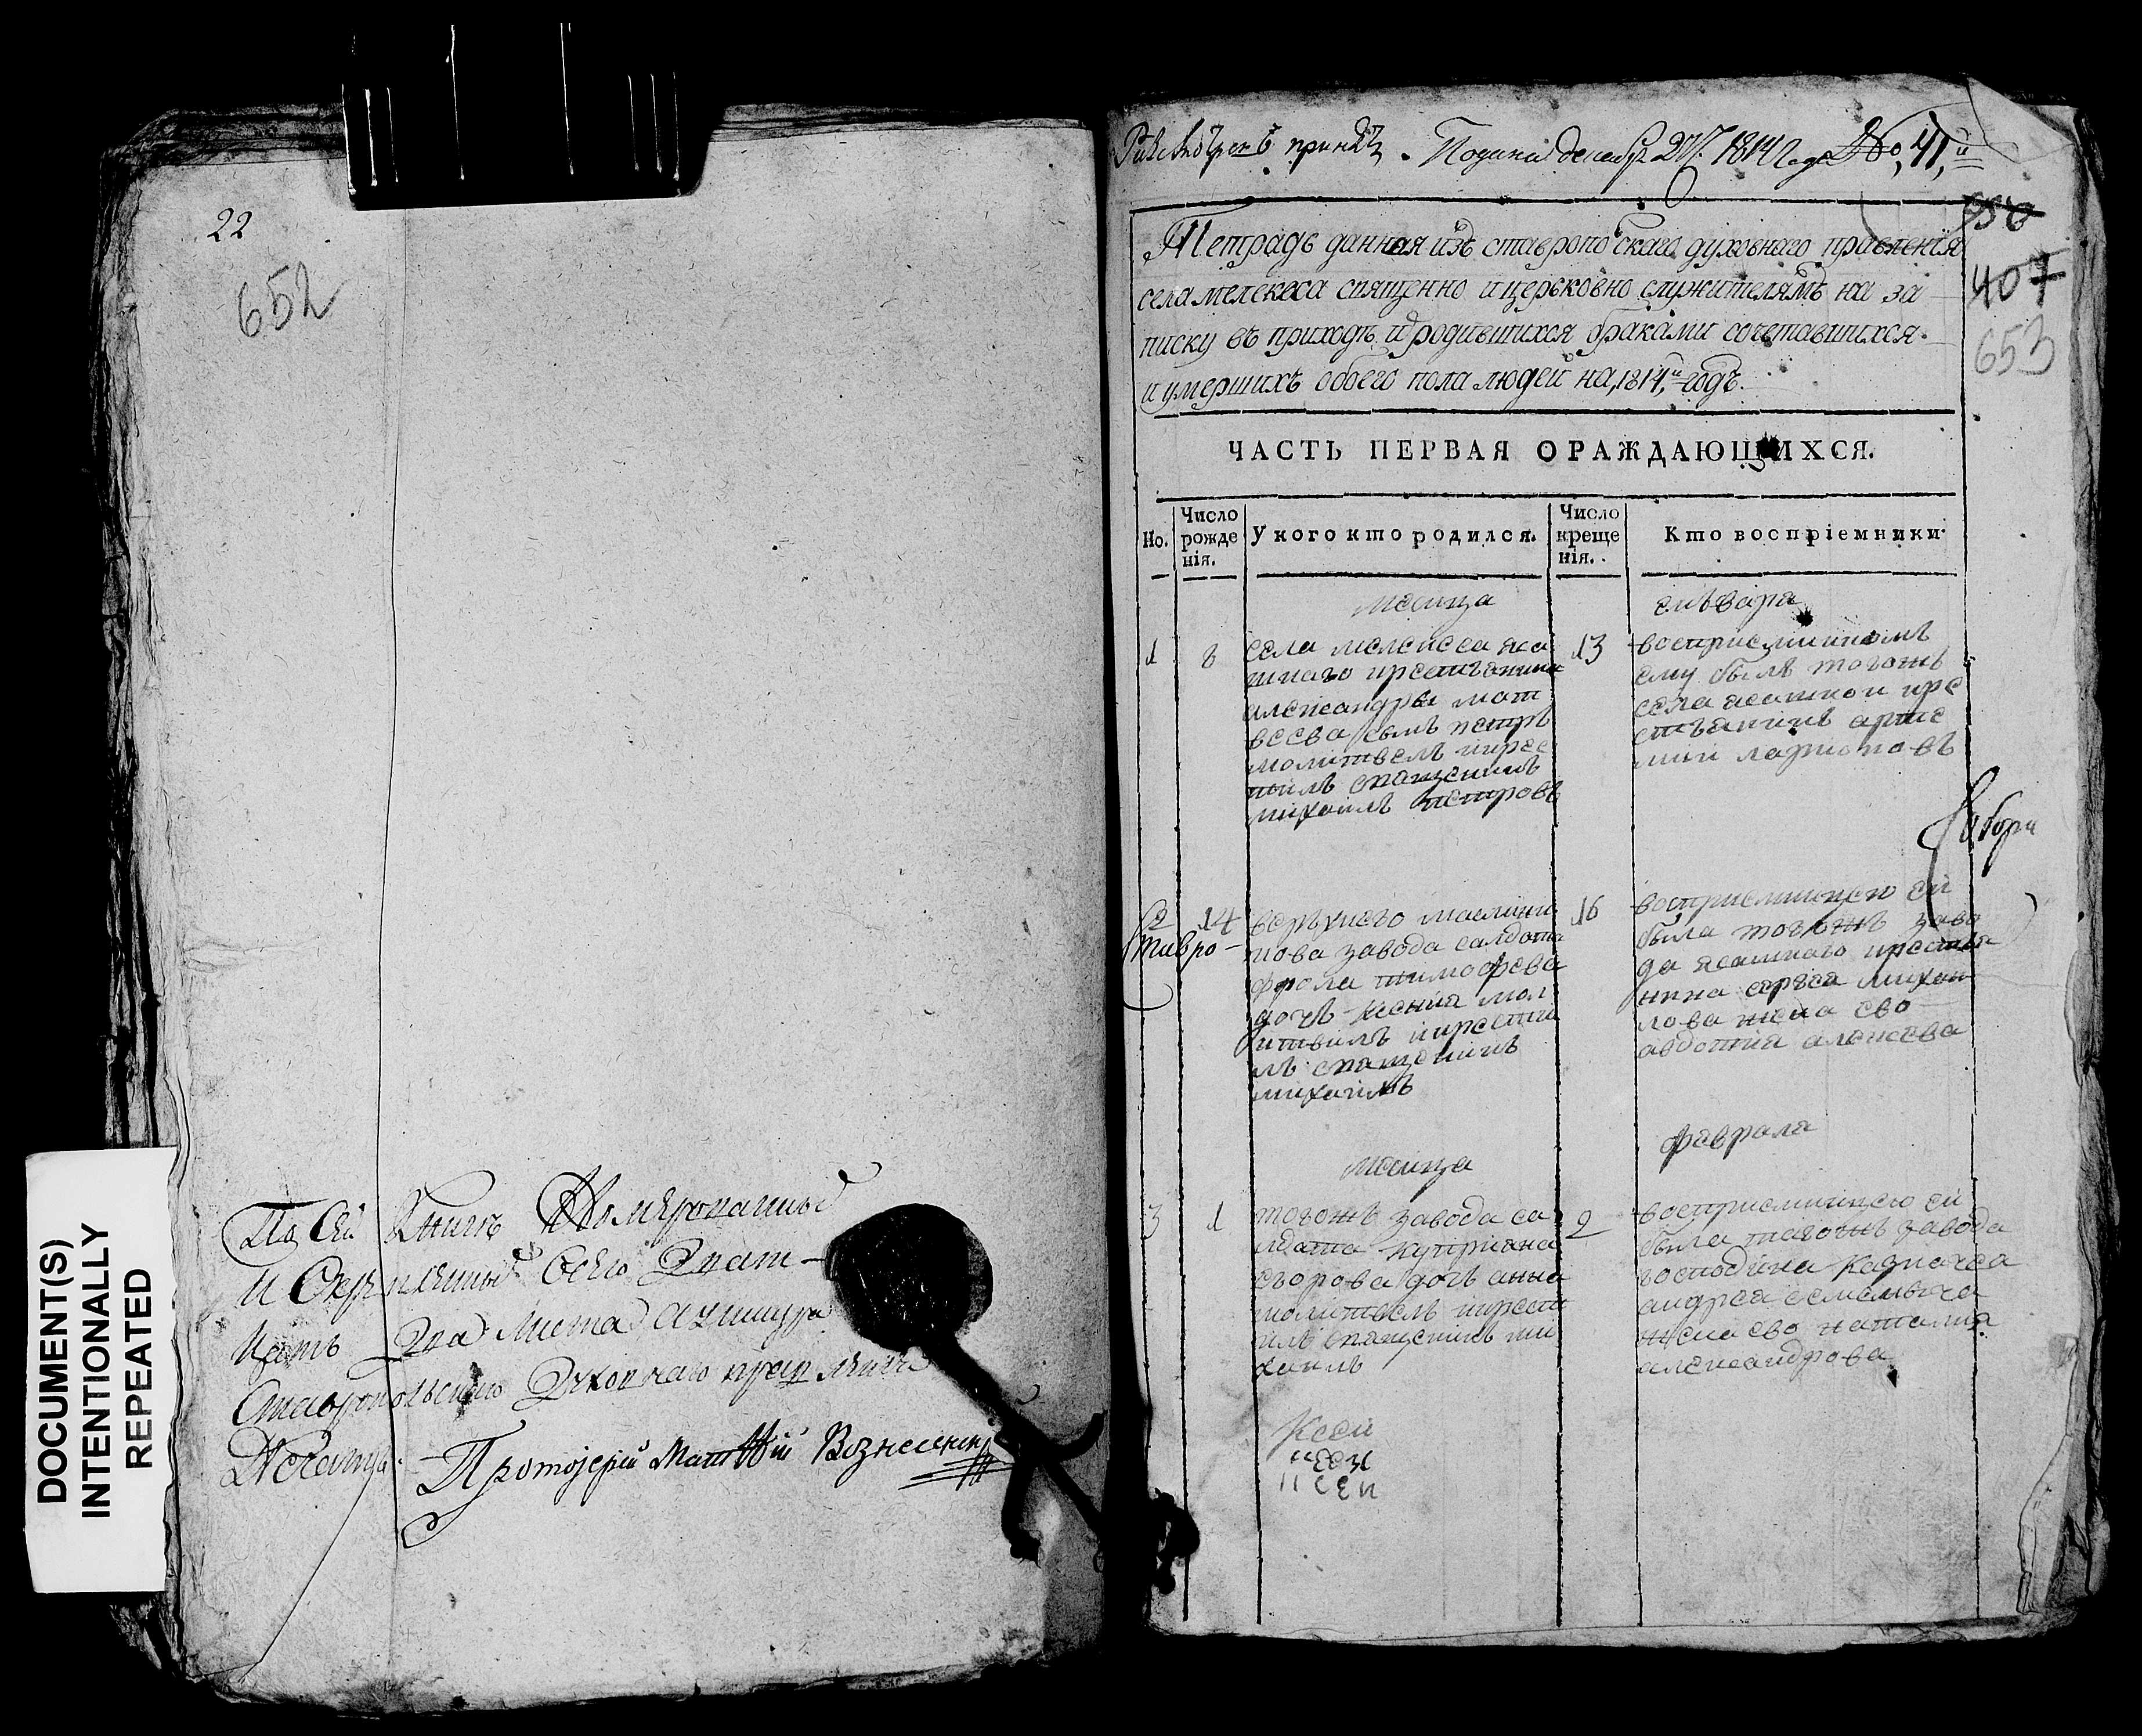 22
652
По Сей Книгѣ Номерованныхъ
и Скрепленныхъ Всего Дват-
цать Два Листа
Ставропольскаго Духовнаго правления
Протоіерей Матвѣй Вознесенск
DOCUMENT(S)
INTENTIONALLY
REPEATED
Подана декабр 1814 года No 41,й
Тетрадь данная изъ ставропольскаго духовнаго правленія
села мелекеса священно и церьковно служителямъ на за
писку въ приходѣ и родившихся браками сочетавшихся
и умершихъ обоего пола людей на 1814,й годъ.
407
653
ЧАСТЬ ПЕРВАЯ О РАЖДАЮЩИХСЯ.
Но.
Число
рожде
нія.
У кого кто родился.
Число
креще
нія.
Кто воспріемники.
месица
генъваря
1
8
села мелекесса яса
шнаго крестьянина
александры мат
веева сынъ петръ
молитвелъ и крес
тилъ священникъ
михаилъ петровъ
13
восприемникомъ
ему былъ тогожъ
села ясашной кре
стьянинъ арте
мий ларионовъ
2
14
верхнего
нова завода салдата
фрола тимофева
дочь ксения мол
итвилъ и крести
лъ священикъ
михаилъ
Ставро-
16
восприемницею ей
была тогожъ заво
да ясашнаго крестья
нина михаи
лова жена ево
авдотия алексеева
месица
февраля
3
1
тогожъ завода са
лдата куприяна
егорова дочь анна
молитвелъ и крест
илъ священикъ ми
хаилъ
2
восприемницею ей
была тогожъ завода
господина казначея
андрея семеныча
жена ево наталия
александрова